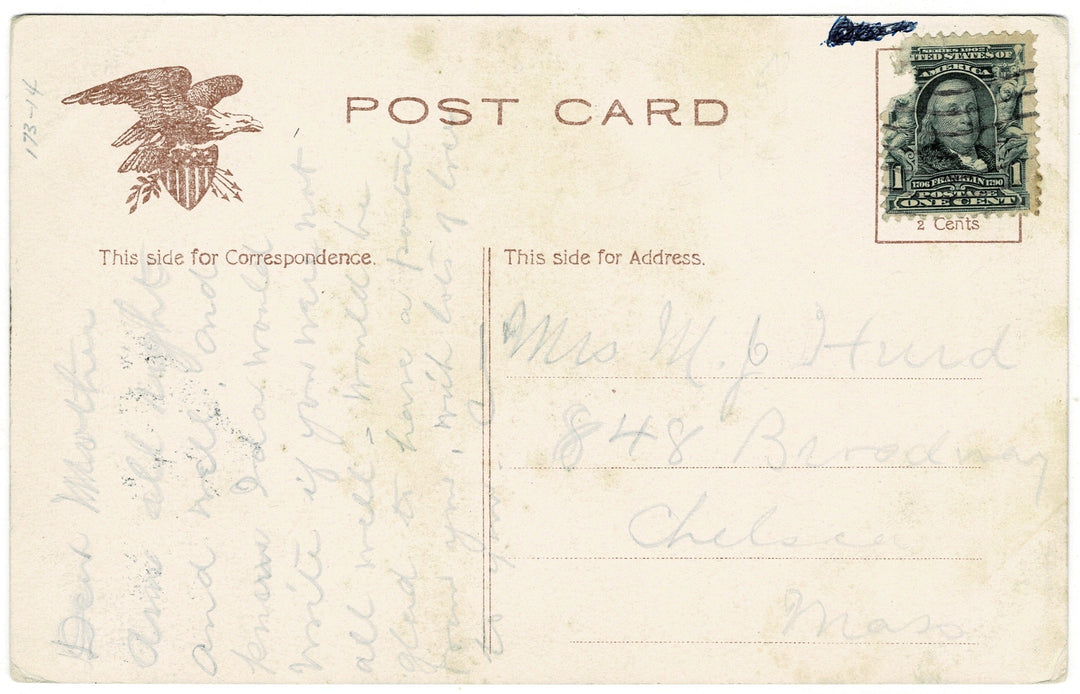 POST CARD
173-14
SERIES 1902
UNITED STATES OF
AMERICA
1706 FRANKLIN 1790
POSTAGE
1 1
ONE CENT
2 Cents
This side for Correspondence.
This side for Address.
Dear Mother
Am all right
and well and
know Ida would
write if you were not
all well - Would be
glad to have a postal
from you, with lots of love
to you
Mrs M. J. Hurd
848 Broadway
Chelsea
Mass